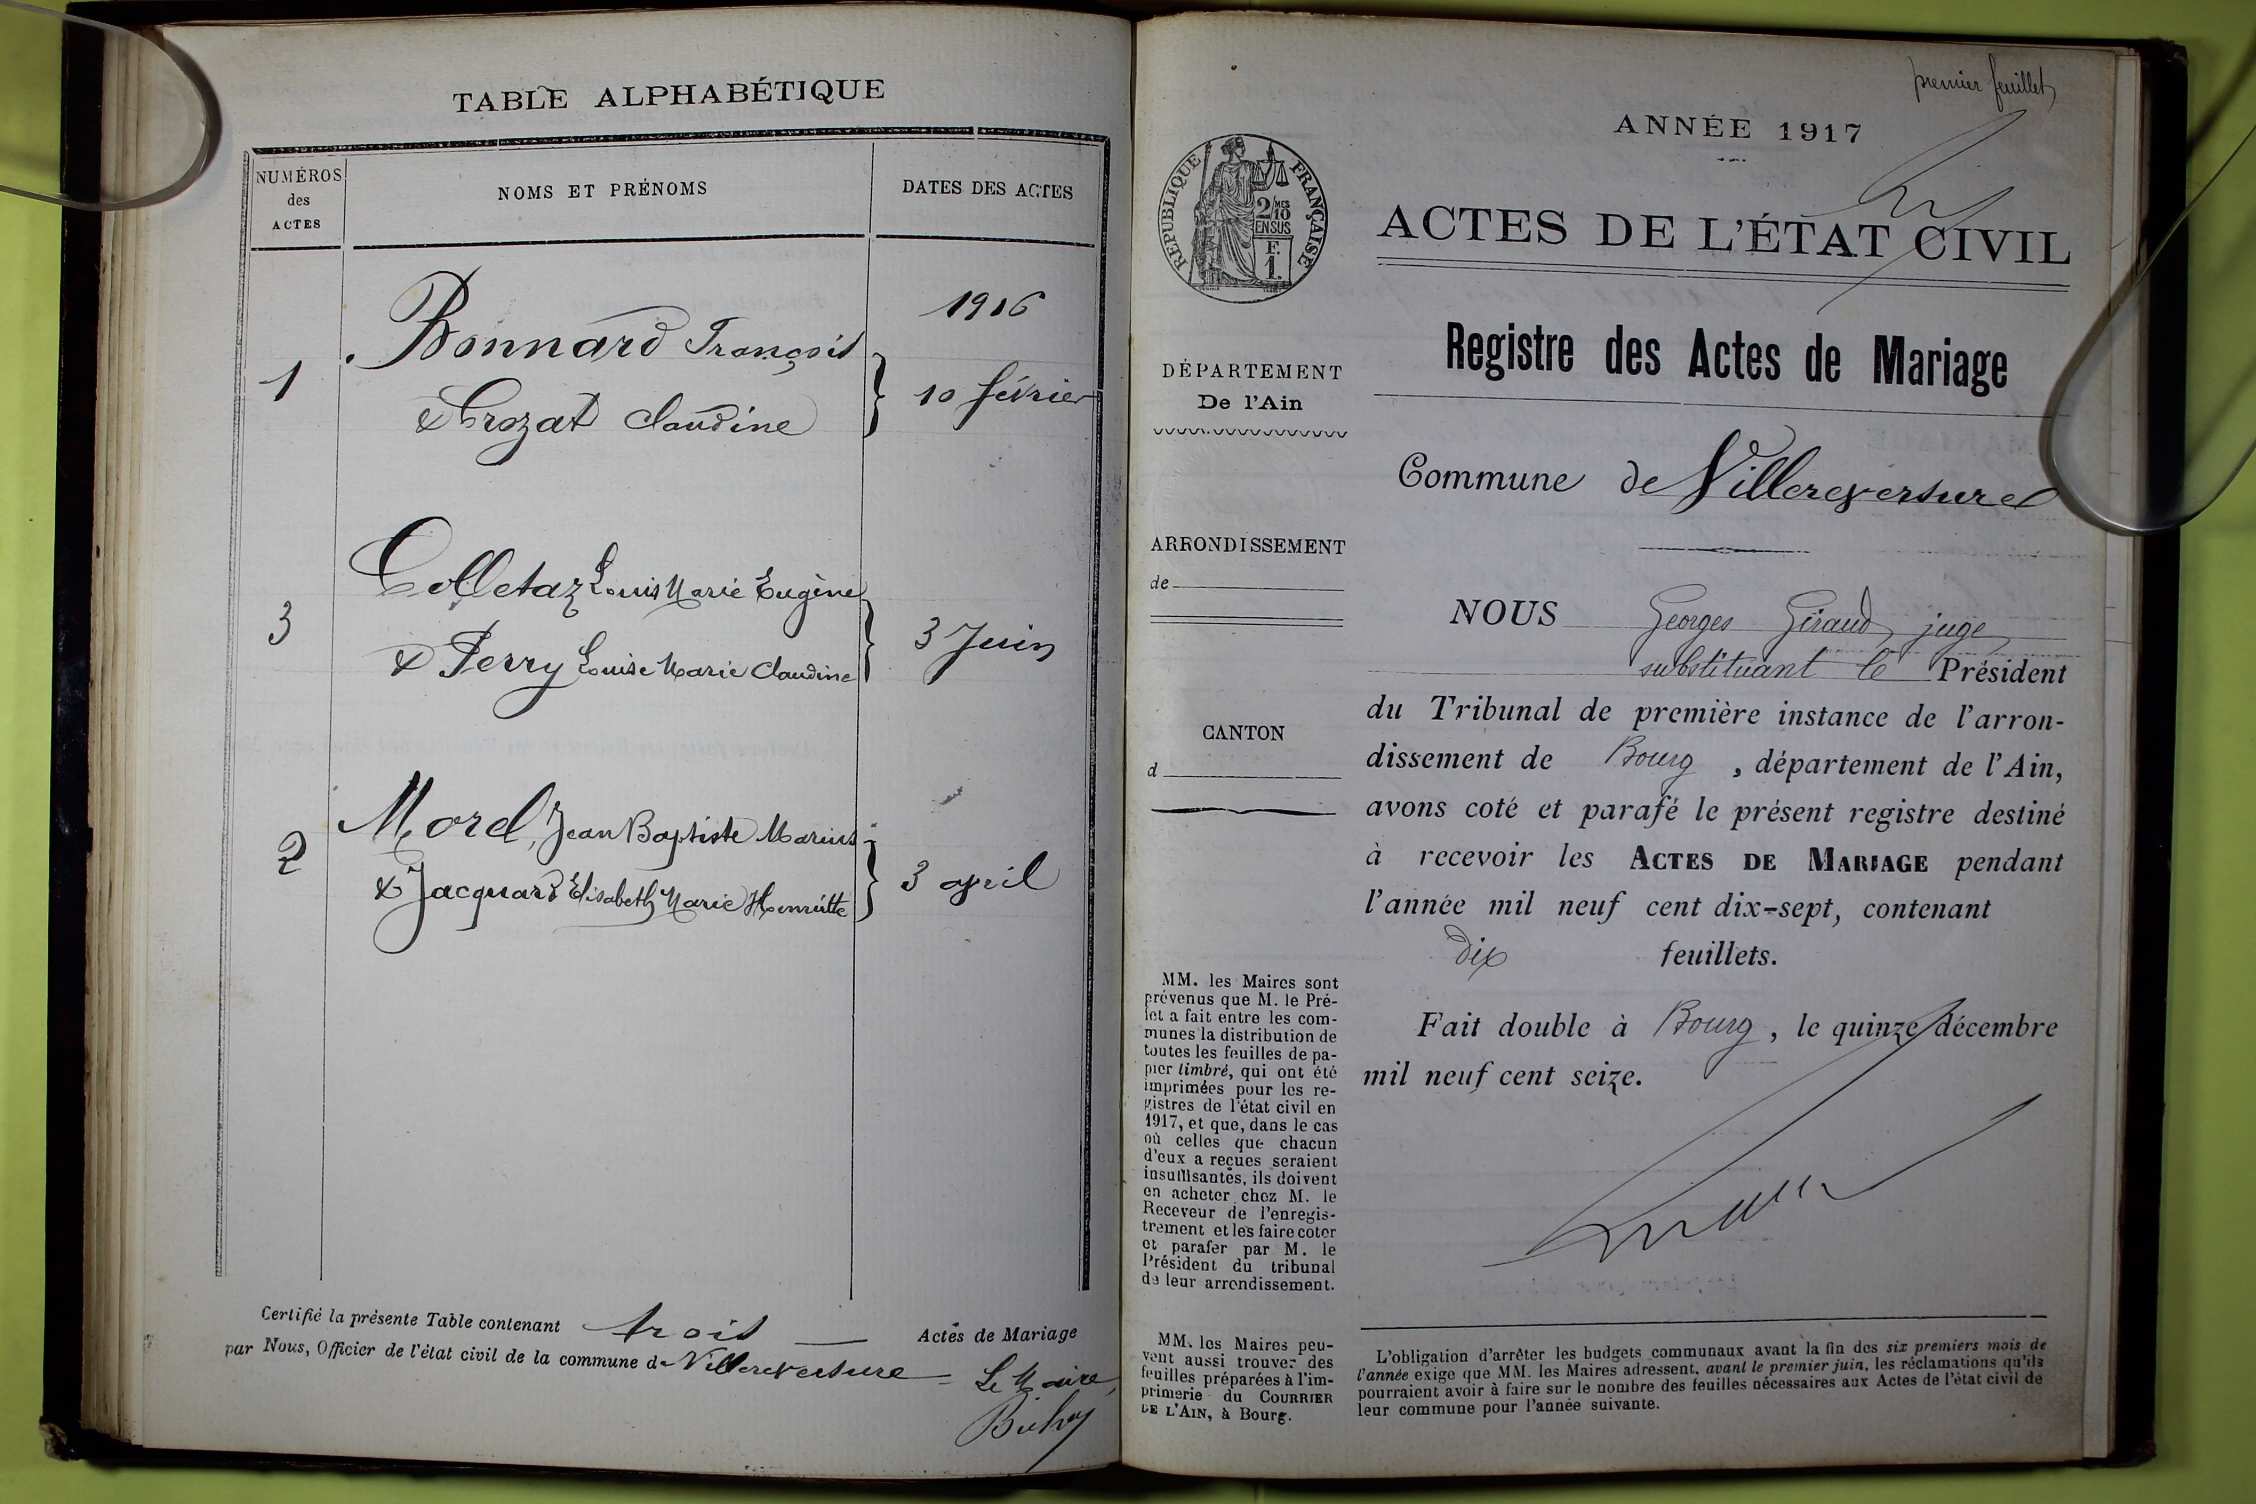 TABLE ALPHABÉTIQUE
NUMÉROS
des
ACTES
NOMS ET PRÉNOMS
DATES DES ACTES
1916
1
Bonnard François
& Crozat Claudine
10 février
3
Colletaz Louis Marie Eugène
& Perry Louise Marie Claudine
3 Juin
2
Morel, Jean Baptiste Marius
& Jacquard Elisabeth Marie Henriette
3 april
Certifié la présente Table contenant trois Actes de Mariage
par Nous, Officier de l'état civil de la commune de Villereversure
Le Maire,
premier feuillet
ANNÉE 1917
RÉPUBLIQUE FRANÇAISE
2/10 MES
EN SUS
F.
1.
ACTES DE L'ÉTAT CIVIL
Registre des Actes de Mariage
DÉPARTEMENT
De l'Ain
Commune de Villereversure
ARRONDISSEMENT
de
CANTON
d
NOUS Georges Giraud, juge
substituant le Président
du Tribunal de première instance de l'arron-
dissement de Bourg, département de l'Ain,
avons coté et parafé le présent registre destiné
à recevoir les ACTES DE MARIAGE pendant
l'année mil neuf cent dix-sept, contenant
dix feuillets.
Fait double à Bourg, le quinze décembre
mil neuf cent seize.
MM. les Maires sont
prévenus que M. le Pré-
fet a fait entre les com-
munes la distribution de
toutes les feuilles de pa-
pier timbré, qui ont été
imprimées pour les re-
gistres de l'état civil en
1917, et que, dans le cas
où celles que chacun
d'eux a reçues seraient
insuffisantes, ils doivent
en acheter chez M. le
Receveur de l'enregis-
trement et les faire coter
et parafer par M. le
Président du tribunal
de leur arrondissement.
MM. les Maires peu-
vent aussi trouver des
feuilles préparées à l'im-
primerie du COURRIER
DE L'AIN, à Bourg.
L'obligation d'arrêter les budgets communaux avant la fin des six premiers mois de
l'année exige que MM. les Maires adressent, avant le premier juin, les réclamations qu'ils
pourraient avoir à faire sur le nombre des feuilles nécessaires aux Actes de l'état civil de
leur commune pour l'année suivante.